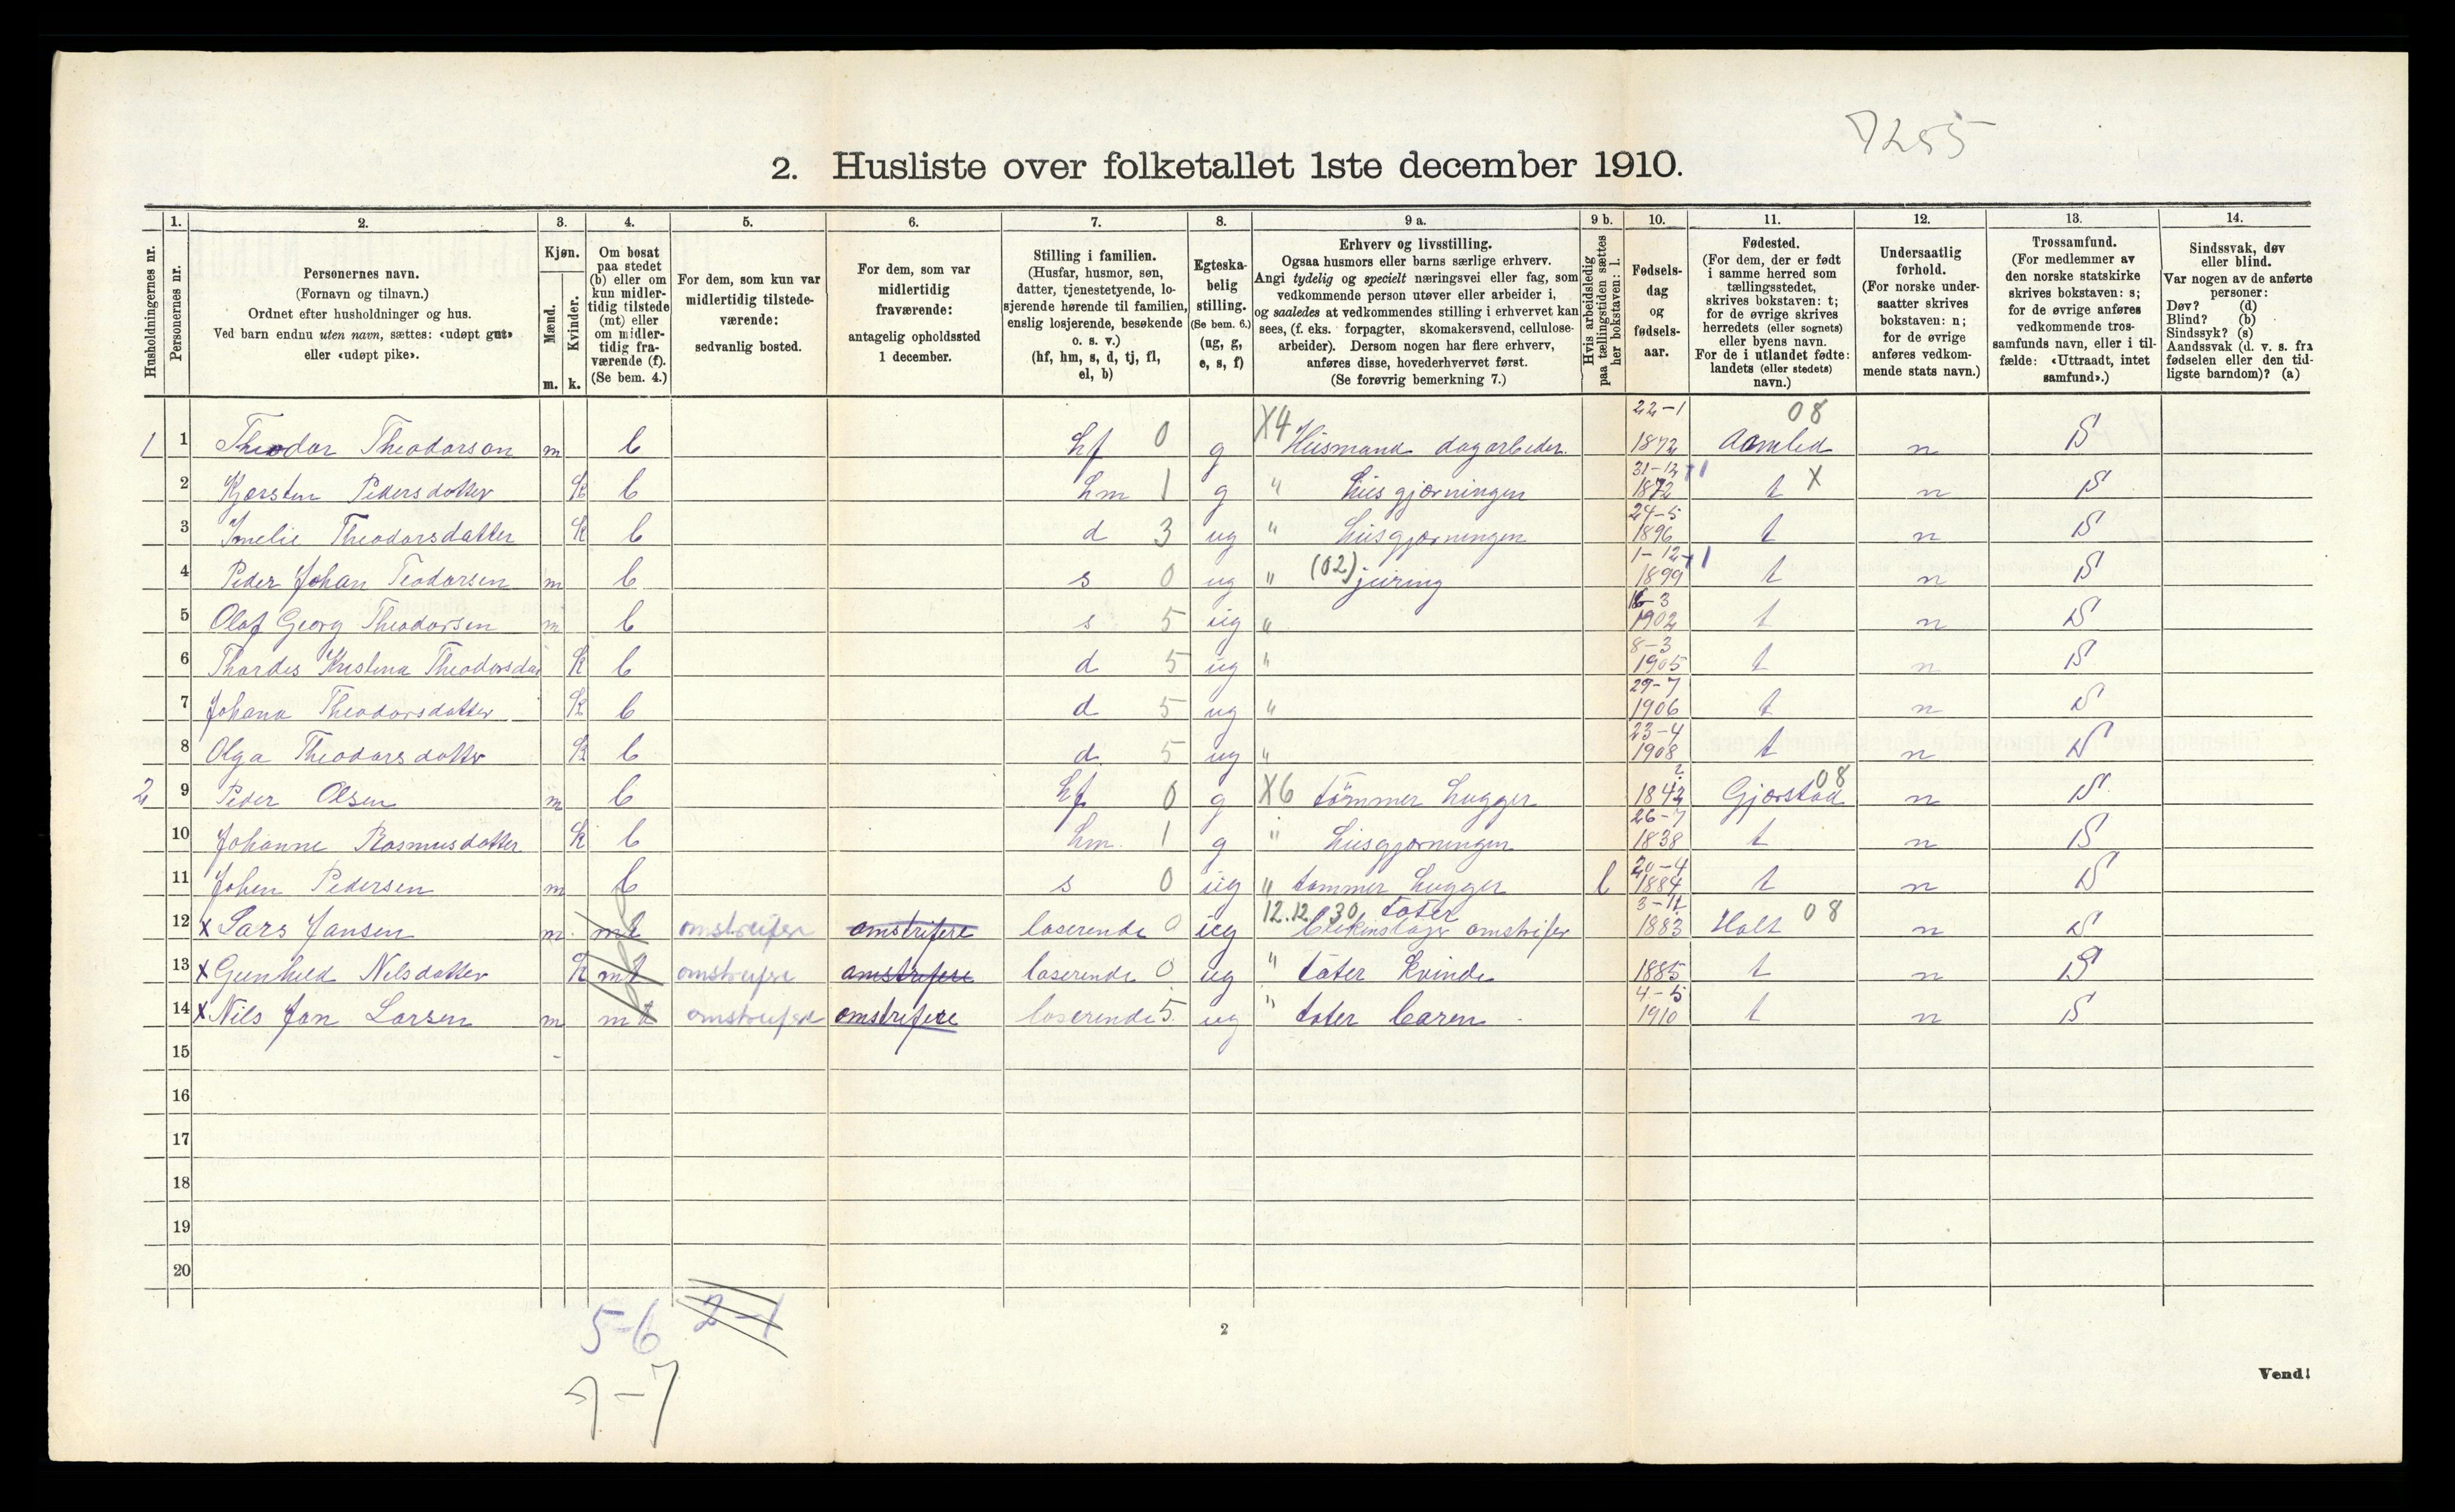 7255
2. Husliste over folketallet 1ste december 1910.
Husholdningernes nr.
1.
Personernes nr.
2.
Personernes navn.
(Fornavn og tilnavn.)
Ordnet efter husholdninger og hus.
Ved barn endnu uten navn, sættes: «udøpt gut»
eller «udøpt pike».
3.
Kjøn.
Mænd.
m.
Kvinder.
k.
4.
Om bosat
paa stedet
(b) eller om
kun midler-
tidig tilstede
(mt) eller
om midler-
tidig fra-
værende (f).
(Se bem. 4.)
5.
For dem, som kun var
midlertidig tilstede-
værende:
sedvanlig bosted.
6.
For dem, som var
midlertidig
fraværende:
antagelig opholdssted
1 december.
7.
Stilling i familien.
(Husfar, husmor, søn,
datter, tjenestetyende, lo-
sjerende hørende til familien,
enslig losjerende, besøkende
o. s. v.)
(hf, hm, s, d, tj, fl,
el, b)
8.
Egteska-
belig
stilling.
(Se bem. 6.)
(ug, g,
e, s, f)
9 a.
Erhverv og livsstilling.
Ogsaa husmors eller barns særlige erhverv.
Angi tydelig og specielt næringsvei eller fag, som
vedkommende person utøver eller arbeider i,
og saaledes at vedkommendes stilling i erhvervet kan
sees, (f. eks. forpagter, skomakersvend, cellulose-
arbeider). Dersom nogen har flere erhverv,
anføres disse, hovederhvervet først.
(Se forøvrig bemerkning 7.)
9 b.
Hvis arbeidsledig
paa tællingstiden sættes
her bokstaven: l.
10.
Fødsels-
dag
og
fødsels-
aar.
11.
Fødested.
(For dem, der er født
i samme herred som
tællingsstedet,
skrives bokstaven: t;
for de øvrige skrives
herredets (eller sognets)
eller byens navn.
For de i utlandet fødte:
landets (eller stedets)
navn.)
12.
Undersaatlig
forhold.
(For norske under-
saatter skrives
bokstaven: n;
for de øvrige
anføres vedkom-
mende stats navn.)
13.
Trossamfund.
(For medlemmer av
den norske statskirke
skrives bokstaven: s;
for de øvrige anføres
vedkommende tros-
samfunds navn, eller i til-
fælde: «Uttraadt, intet
samfund».)
14.
Sindssvak, døv
eller blind.
Var nogen av de anførte
personer:
Døv? (d)
Blind? (b)
Sindssyk? (s)
Aandssvak (d. v. s. fra
fødselen eller den tid-
ligste barndom)? (a)
1 1 Theodor Theodorson m b hf 0 g X4 Husmand dagarbeder. 22-1 1872 Aamled 08 n S
2 Kjersten Pedersdotter k b hm 1 g " husgjørningen 31-12 1872 t X n S
3 Imelie Theodorsdatter k b d 3 ug " husgjørningen 24-5 1896 t n S
4 Peder Johan Teodorsen m b s 0 ug " (02) juring 1-12 1899 t n S
5 Olaf Georg Theodorsen m b s 5 ug " 16-3 1902 t n S
6 Thordis Kristena Theodorsdat k b d 5 ug " 8-3 1905 t n S
7 Johana Theodorsdotter k b d 5 ug " 29-7 1906 t n S
8 Olga Theodorsdotter k b d 5 ug " 23-4 1908 t n S
2 9 Peder Olsen m b hf 0 g X6 tømmer hugger ? 1842 Gjerstad 08 n S
10 Johanne Rasmusdotter k b hm 1 g " husgjørningen 26-7 1838 t n S
11 Johen Pedersen m b s 0 ug " tommer hugger l 20-4 1884 t n S
12 x Lars Jansen m mt omstreifere omstrifere loserende 0 ug 12.12.30 tater blekinslager omstrifer 3-11 1883 Holt 08 n S
13 x Gunheld Nilsdotter k mt omstreifere omstrifere loserende 0 ug " tater kvinde 1885 t n S
14 x Nils Jan Larsen m mt omstreifere omstrifere loserende 5 ug " tater baren 4-5 1910 t n S
15
16
17
18
19
20
5-6 2-1
7-7
2
Vend!